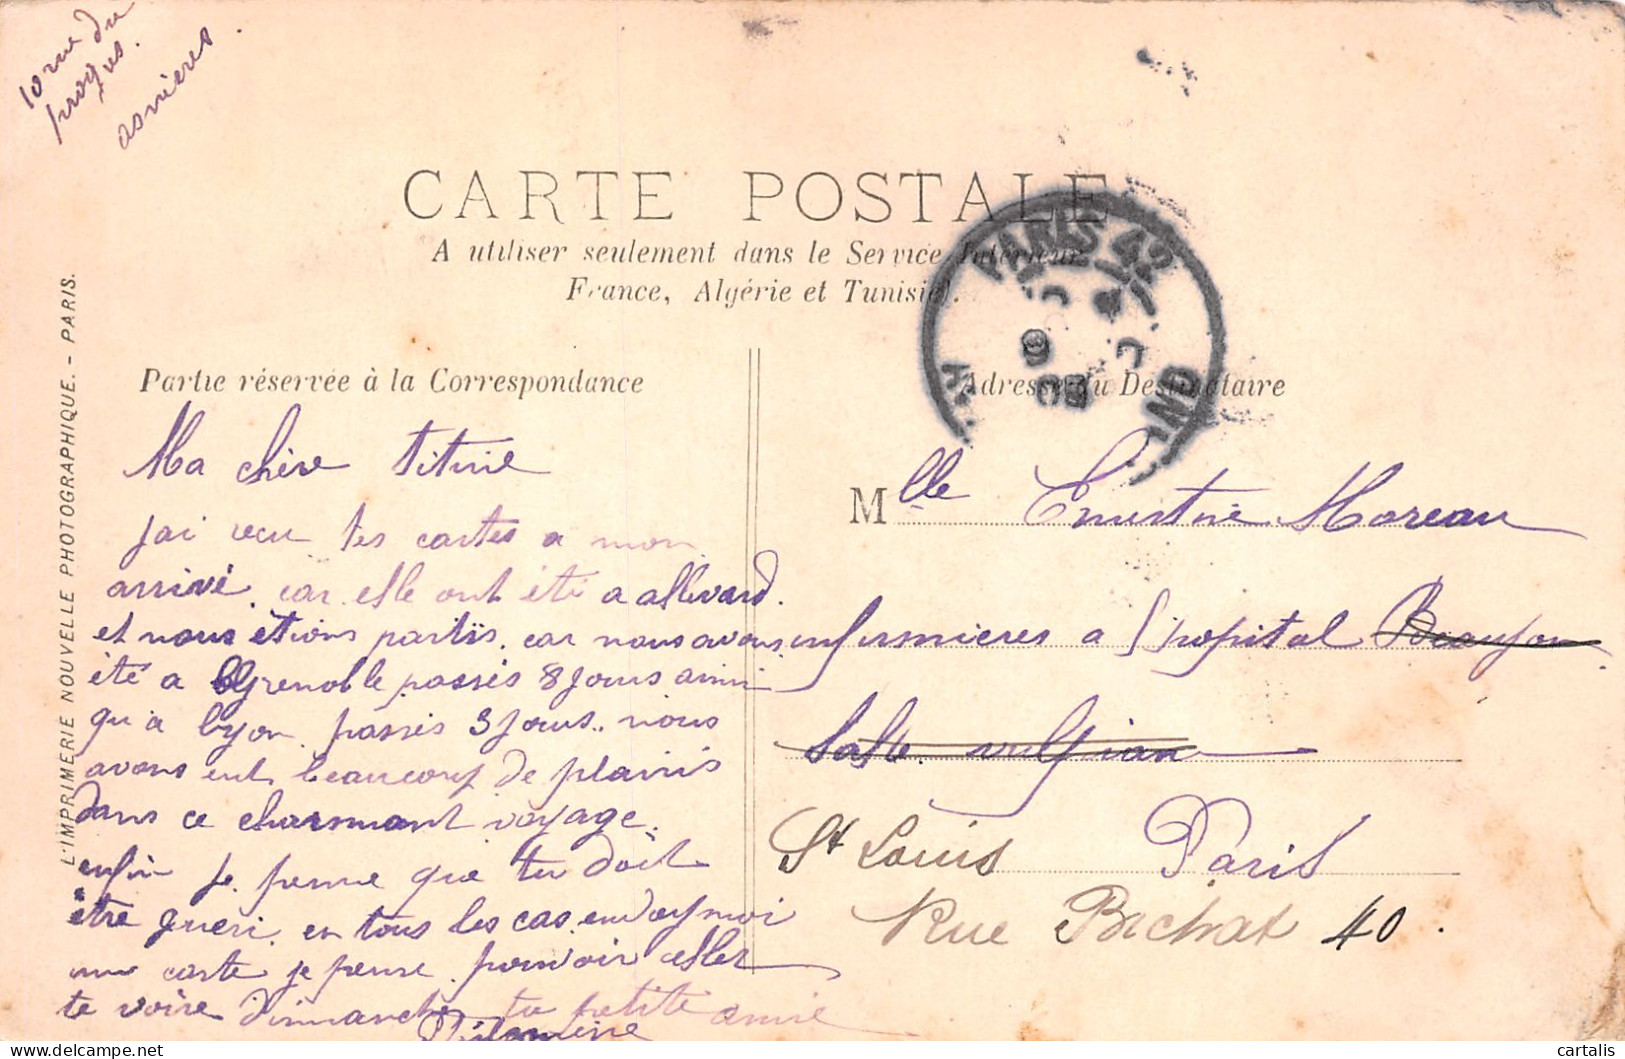 10 rue du
progres.
asnieres
CARTE POSTALE
A utiliser seulement dans le Service Intérieur
France, Algérie et Tunisie).
PARIS 42
IND
L'IMPRIMERIE NOUVELLE PHOTOGRAPHIQUE. - PARIS.
Partie réservée à la Correspondance
Adresse du Destinataire
Ma chère titine
jai recu tes cartes a mon
arrivé. car elle ont été a allevard.
et nous étions partis. car nous avons
été a Grenoble passés 8 jours ainsi
qu'a lyon. passés 3 jours. nous
avons eut beaucoup de plaisis
dans ce charmant voyage.
enfin je pense que tu doit
être gueri. en tous les cas. envoy moi
une carte je pense pouvoir aller
te voire dimanche ta petite amie
Philomène
Mlle Ernestine Moreau
infirmieres a l'hopital Beaujon
Salle vulpian
St Louis Paris
Rue Bichat 40.
cartalis
delcampe.net